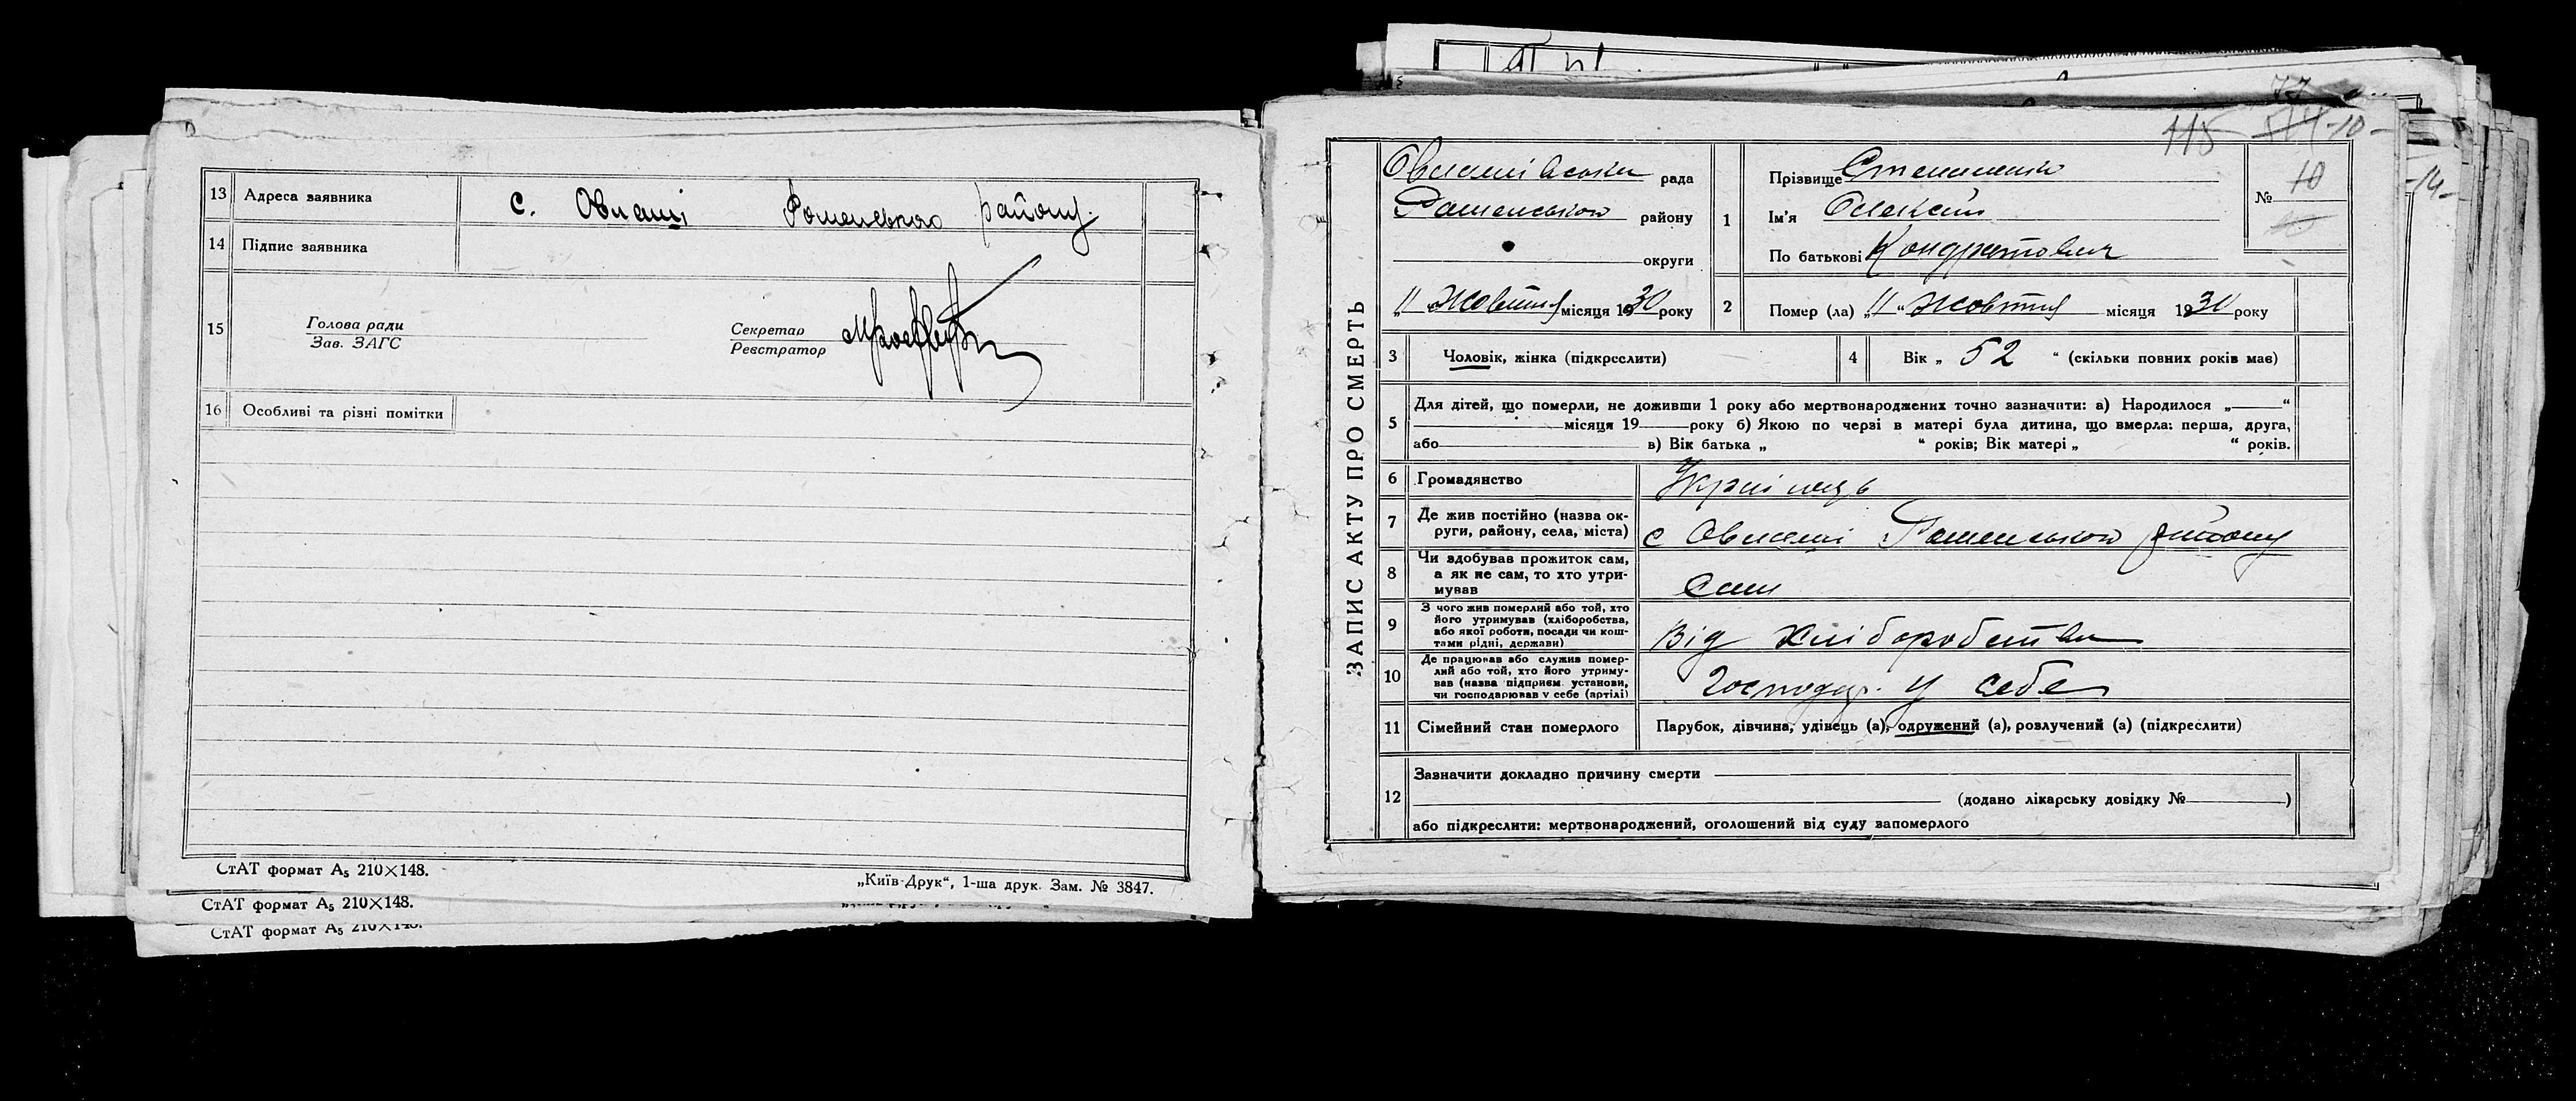 13 Адреса заявника с. Овлаші Роменського району.
14 Підпис заявника
15 Голова ради
Зав. ЗАГС
Секретар
Реєстратор
16 Особливі та різні помітки
СтАТ формат А₅ 210×148.
„Київ-Друк“, 1-ша друк. Зам. № 3847.
СтАТ формат А₅ 210×148.
СтАТ формат А₅ 210×148.
115 -10-
-14-
ЗАПИС АКТУ ПРО СМЕРТЬ
Овлашівська рада
Роменського району
округи
„11“ Жовтня місяця 1930 року
1 Прізвище Степаненко
Ім'я Олексій
По батькові Кондратович
№ 10
2 Помер (ла) „11“ Жовтня місяця 1930 року
3 Чоловік, жінка (підкреслити)
4 Вік „ 52 “ (скільки повних років має)
5 Для дітей, що померли, не доживши 1 року або мертвонароджених точно зазначити: а) Народилося „ “
місяця 19 року б) Якою по черзі в матері була дитина, що вмерла: перша, друга,
або в) Вік батька „ “ років; Вік матері „ “ років.
6 Громадянство Українець
7 Де жив постійно (назва ок-
руги, району, села, міста) с Овлаші Роменського району
8 Чи здобував прожиток сам,
а як не сам, то хто утри-
мував Сам
9 З чого жив померлий або той, хто
його утримував (хліборобства,
або якої роботи, посади чи кош-
тами рідні, держави) Від хліборобства
10 Де працював або служив помер-
лий або той, хто його утриму-
вав (назва підприєм. установи,
чи господарював у себе (артілі) Господар. у себе
11 Сімейний стан померлого Парубок, дівчина, удівець (а), одружений (а), розлучений (а) (підкреслити)
12 Зазначити докладно причину смерти
(додано лікарську довідку № )
або підкреслити: мертвонароджений, оголошений від суду запомерлого